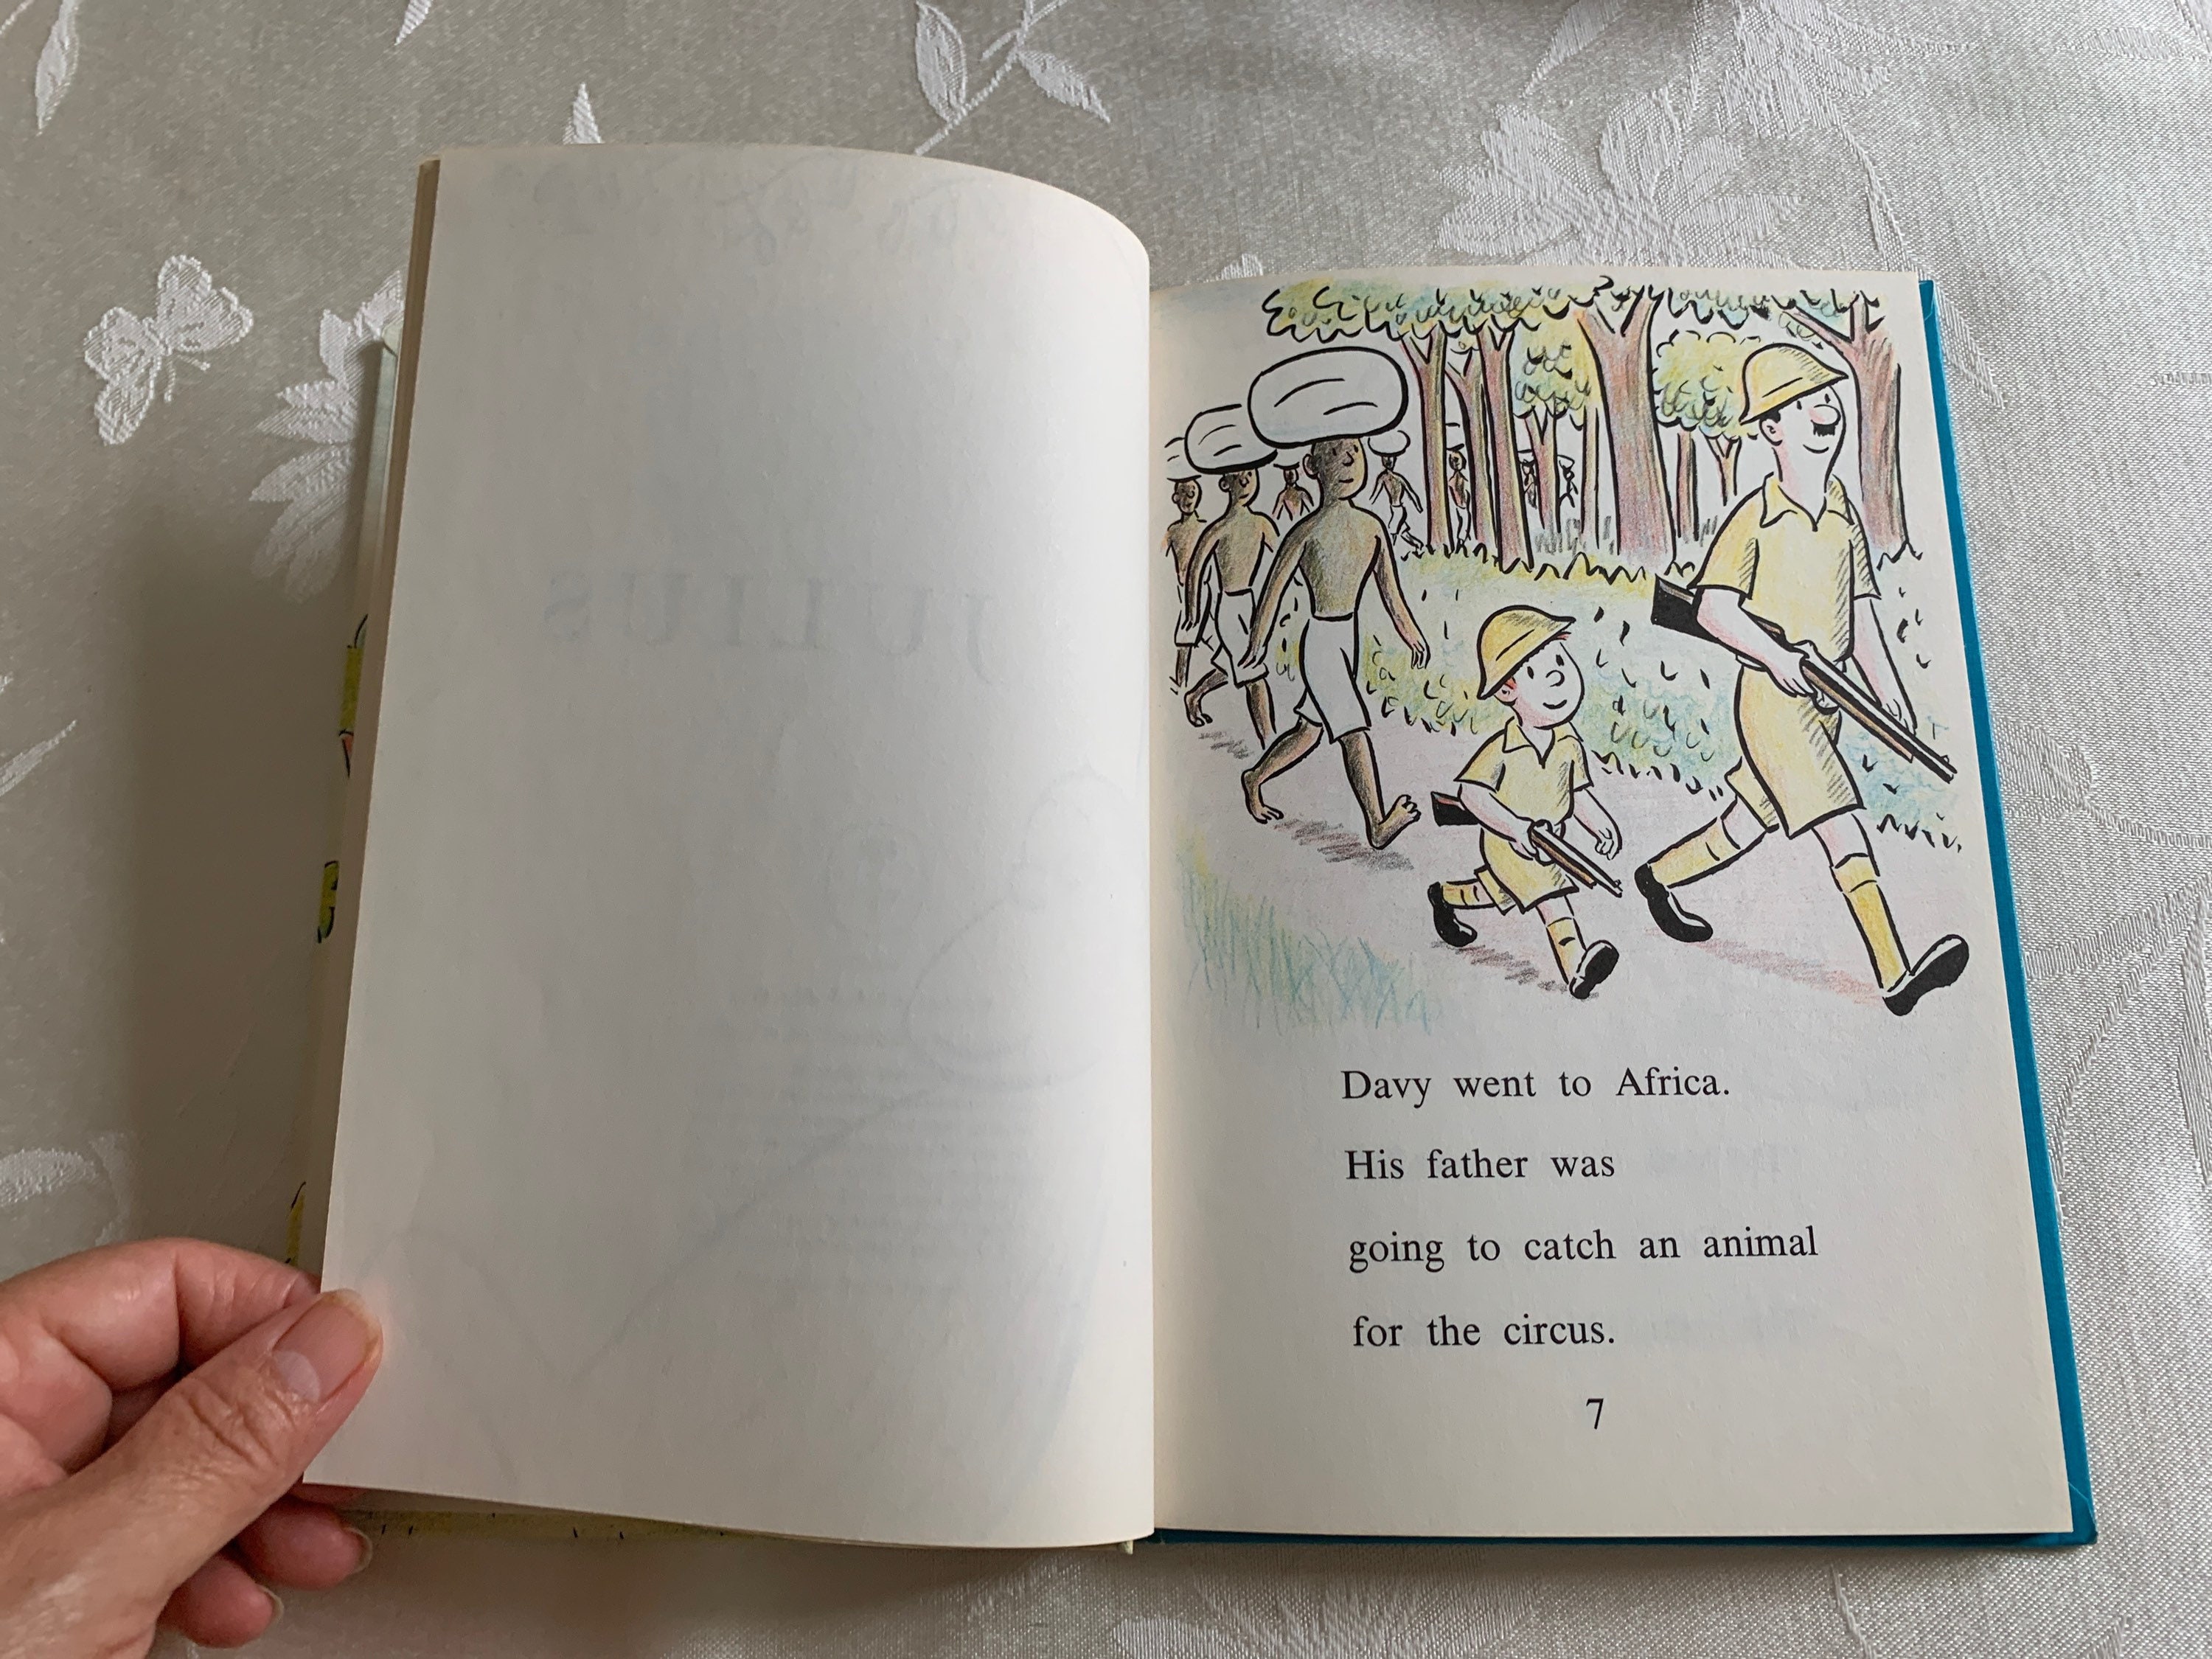 JULIUS
Davy went to Africa.
His father was
going to catch an animal
for the circus.
7